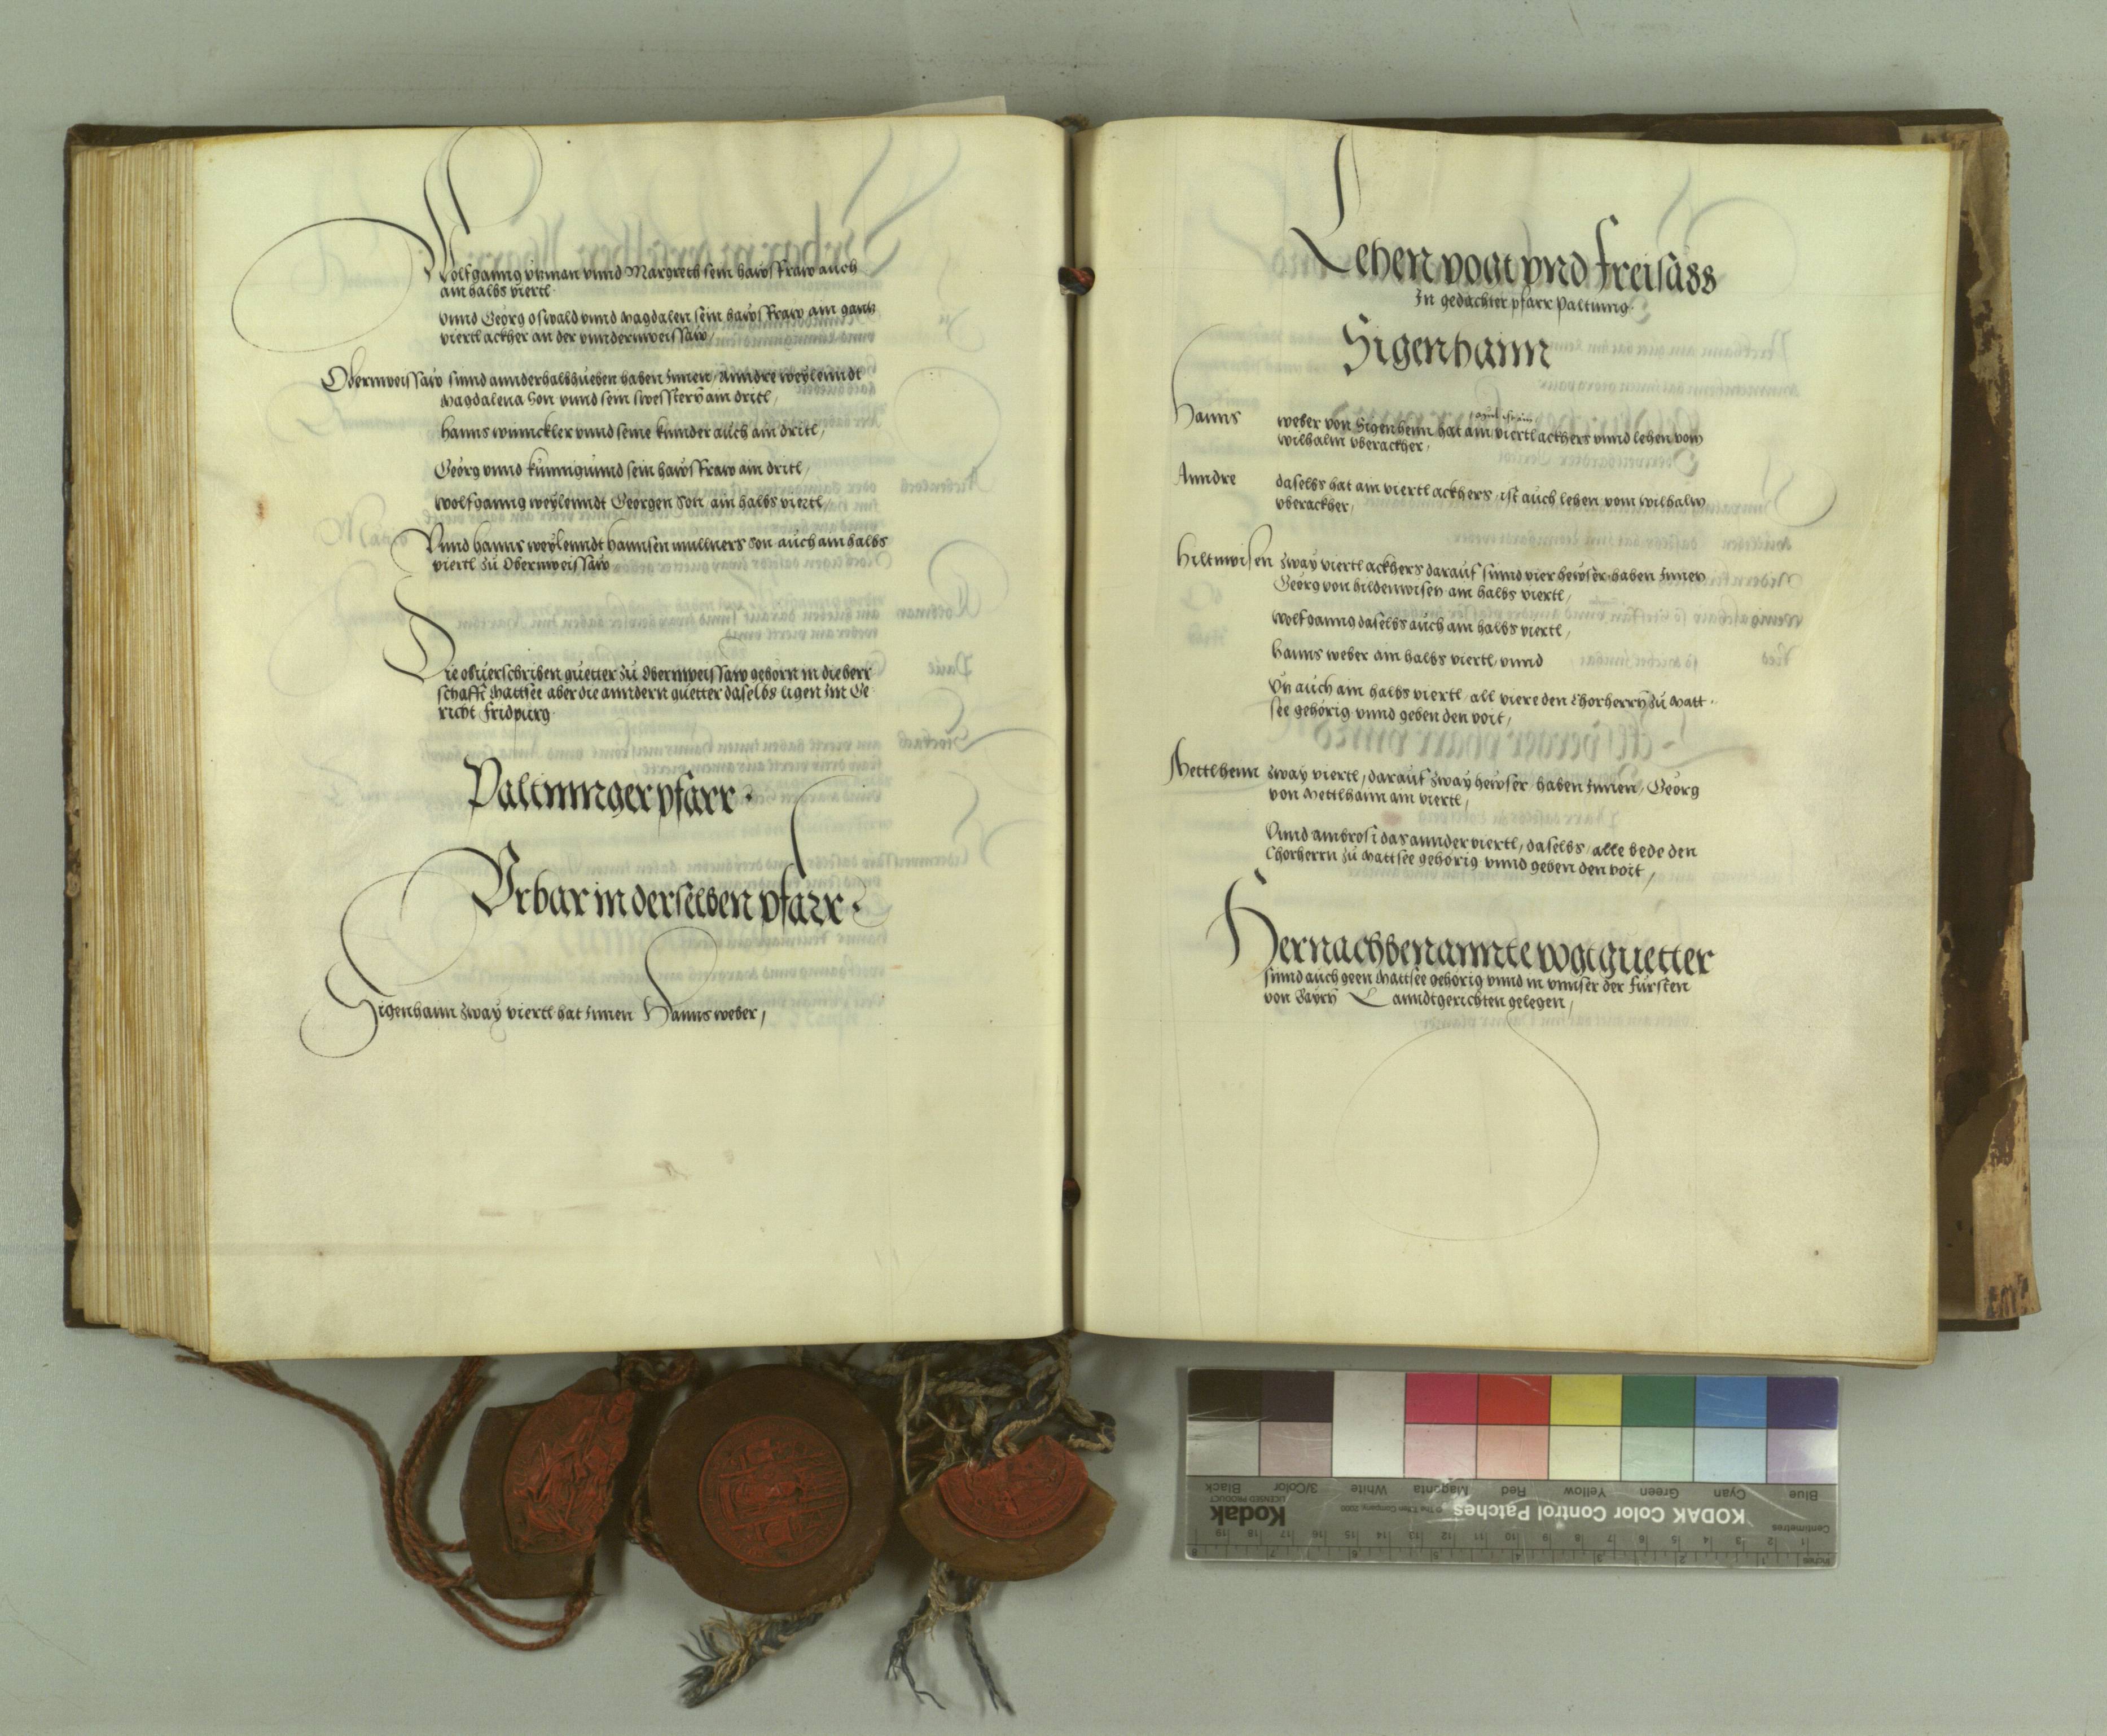 Wolfganng vnman vnnd Margreth sein hawsfraw auch
am halbs viertl
vnnd Georg oswald vnnd Magdalen sein hawsfraw ain gantz
viertl ackher an der vnndernweissaw,
Obernweissaw sinnd annderhalbhueben haben Innen, Anndre weylenndt
Magdalena Son vnnd sein swesstern ain dritl,
hanns wincklervnnd seine kinnder auch ain dritl,
Georg vnnd kunnigunnd sein hawsfraw ain dritl,
wolfganng weylenndt Georgen Son, am halbs viertl,
Vnnd hanns weylenndt hannsen mullners Son auch am halbs
viertl zu Obernweissaw
Die obuerschriben guetter zu Obernweissaw gehorn in die herr
schafft Mattsee aber die anndern guetter daselbs ligen im Ge
richt Fridpurg
Paltninger pfarr
Vrbar in derselben pfarr
Sigenhaim zway viertl hat Innen Hanns weber,
Lehen vogt vnd freisäss
In gedachter pfarr Paltinng
Sigenhaim
Hanns weber von Sigenheim hat ain viertl ackhers vnnd lehen vom
wilhalm vberackher,
Anndre daselbs hat am viertl ackhers, ist auch lehen vom wilhalm
vberackher,
Hiltnwisen zway viertl ackhers darauf sinnd vier hewser haben Innen
Georg von hildenwisen am halbs viertl,
wolfganng daselbs auch am halbs viertl,
hanns weber am halbs viertl, vnnd
auch am halbs viertl, all viere den Chorherrn zu Matt
see gehorig vnnd geben den voit,
Mettlheim zway viertl, darauf zway hewser, haben Innen, Georg
von Mettlhaim ain viertl,
Vnnd ambrosi das annder viertl, daselbs, alle bede den
Chorherrn zu Mattsee gehorig vnnd geben den voit,
Hernachbenannte vogtguetter
sinnd auch geen Mattsee gehorig vnnd in vnnser der Fursten
von Bayrn Lanndtgerichten gelegen,
KODAK Color Control Patches
© The Tiffen Company, 2000
Kodak
LICENSED PRODUCT
Blue Cyan Green Yellow Red Magenta White 3/Color Black
Inches 1 2 3 4 5 6 7 8
Centimetres 1 2 3 4 5 6 7 8 9 10 11 12 13 14 15 16 17 18 19